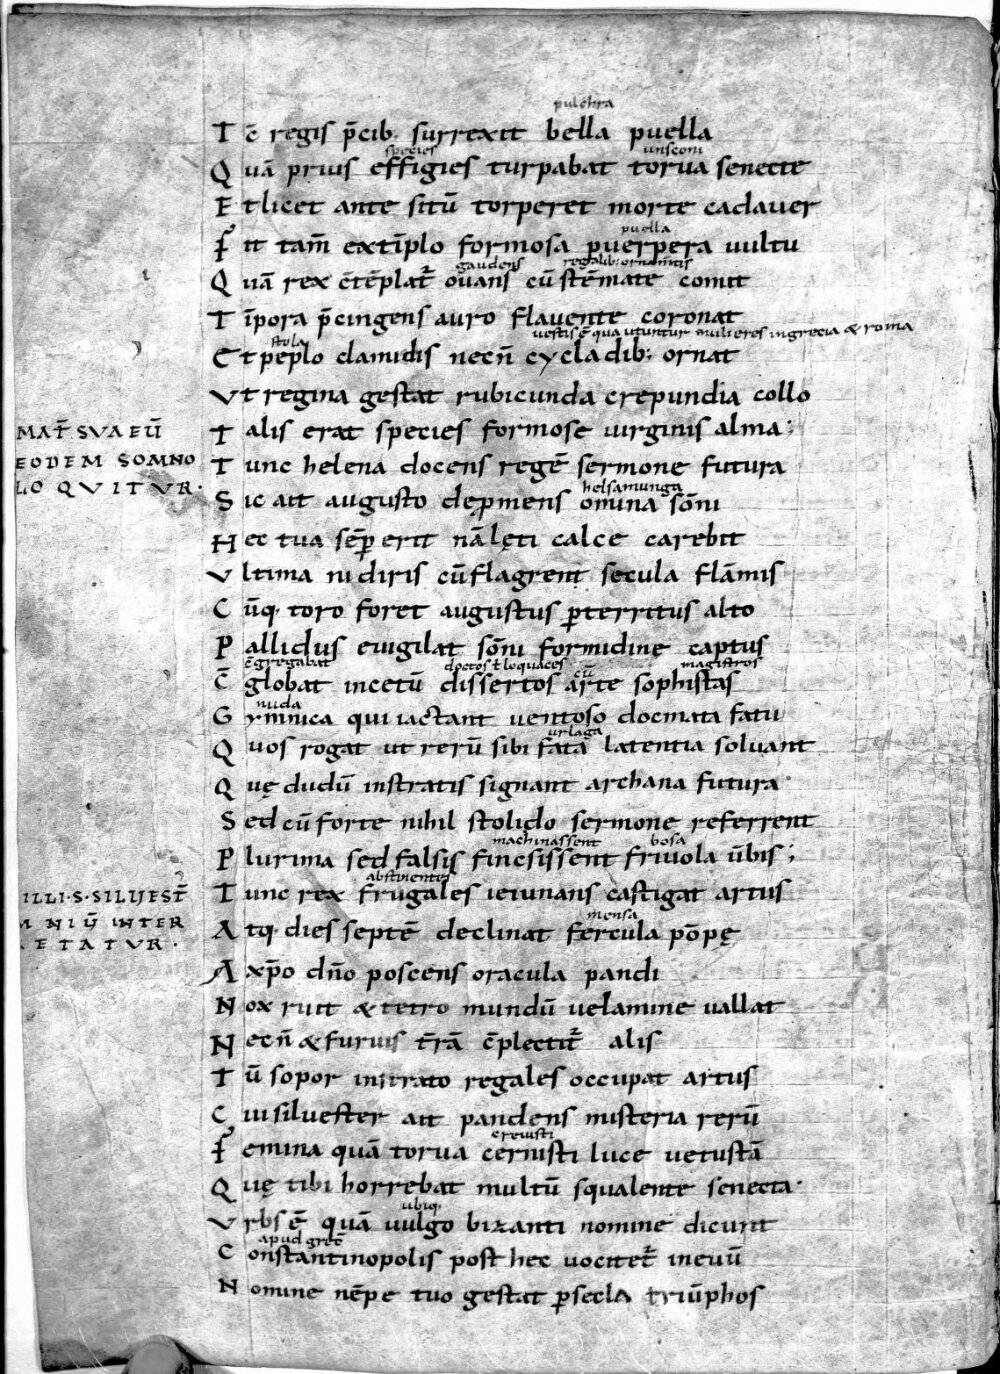 pulchra
T c̄ regis p̄cib. surrexit bella puella
species unsconi
Q uā prius effigies turpabat torua senecte
E t licet ante sitū torperet morte cadauer
puella
F it tam̄ extīplo formosa puerpera uultu
gaudens regalib: ornam̄tis
Q uā rex c̄tēplat᷑ ouans cū stēmate comit
T īpora p̄cingens auro flauente coronat
stola uestis ē qua utuntur mulieres in grecia & roma
E t peplo clamidis necn̄ cycladib; ornat
V t regina gestat rubicunda crepundia collo
T alis erat species formose uirginis alma;
MAT̄ SVA EŪ
EODEM SOMNO
LOQVITVR.
T unc helena docens regē sermone futura
helsamunga
S ic ait augusto dep̨mens omina sōni
H ec tua sēp̱ erit nā lęti calce carebit
V ltima ni diris cū flagrent secula flāmis
C ūq. toro foret augustus p̱territus alto
P allidus euigilat sōni formidine captus
c̄gregabat doctos ł loquaces cū magistros
C̄ globat incetū dissertos arte sophistas
nuda
G ymnica qui iactant uentoso docmata fatu
urlaga
Q uos rogat ut rerū sibi fata latentia soluant
Q uę dudū instratis signant archana futura
S ed cū forte nihil stolido sermone referrent
machinassent bosa
P lurima sed falsis fincsissent friuola ūbis;
abstinentes
T unc rex frugales ieiunans castigat artus
mensa
A tq. dies septē declinat fercula pōpę
ILLI.S.SILUEST̄
NIŪ INTER
ETATVR.
A xp̄o dn̄o poscens oracula pandi
N ox ruit & tetro mundū uelamine uallat
N ecn̄ & furuis t̄rā c̄plectit᷑ alis
T ū sopor inirrato regales occupat artus
C ui siluester ait pandens misteria rerū
creuisti
F emina quā torua cernisti luce uetustā
Q uę tibi horrebat multū squalente senecta.
ubiq.
V rbs ē quā uulgo bizanti nomine dicunt
apud grec̄
C onstantinopolis post hec uocitet᷑ in euū
N omine nēpe tuo gestat p̱ secla triūphos